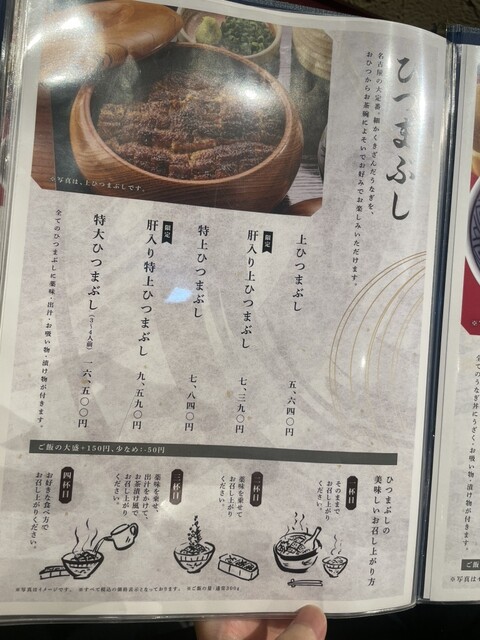 ひつまぶし
名古屋の大定番。細かくきざんだうなぎを、
おひつからお茶碗によそいでお好みでお楽しみいただけます。
※写真は、上ひつまぶしです。
上ひつまぶし 五、六四〇円
限定
肝入り上ひつまぶし 七、三九〇円
特上ひつまぶし 七、八四〇円
限定
肝入り特上ひつまぶし 九、五九〇円
特大ひつまぶし(3〜4人前) 一六、五〇〇円
全てのひつまぶしに薬味・出汁・お吸い物・漬け物が付きます。
ご飯の大盛+150円、少なめ:-50円
ひつまぶしの
美味しいお召し上がり方
一杯目
そのままで
お召し上がり
ください。
二杯目
薬味を乗せて
お召し上がり
ください。
三杯目
薬味を乗せ、
出汁をかけて、
お茶漬け風で
お召し上がり
ください。
四杯目
お好きな食べ方で
お召し上がりください。
※写真はイメージです。 ※すべて税込の価格表示となっております。 ※ご飯の量:通常300g